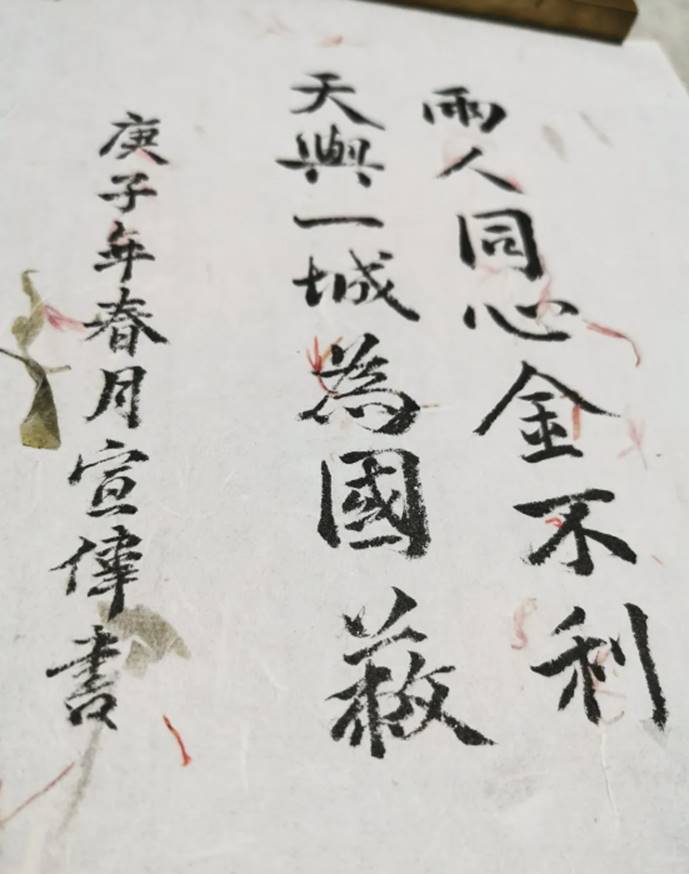 兩人同心金不利
天與一城為國蔽
庚子年春月宣偉書